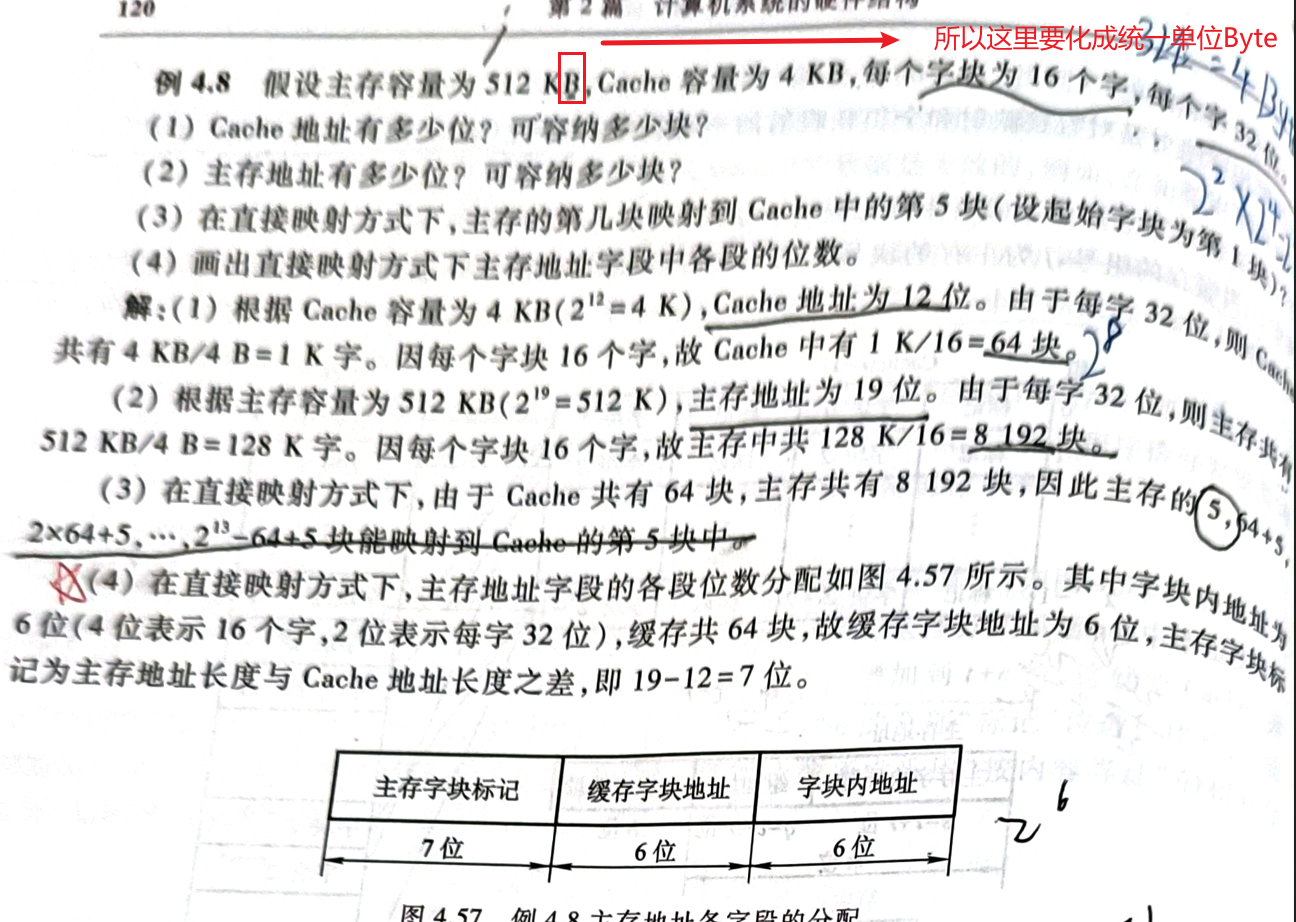 120 第2篇 计算机系统的硬件结构
所以这里要化成统一单位Byte
例 4.8 假设主存容量为 512 KB,Cache 容量为 4 KB,每个字块为 16 个字,每个字 32 位。
(1) Cache 地址有多少位? 可容纳多少块?
(2) 主存地址有多少位? 可容纳多少块?
(3) 在直接映射方式下,主存的第几块映射到 Cache 中的第 5 块(设起始字块为第 1 块)?
(4) 画出直接映射方式下主存地址字段中各段的位数。
解:(1) 根据 Cache 容量为 4 KB(2¹²=4 K),Cache 地址为 12 位。由于每字 32 位,则 Cache
共有 4 KB/4 B=1 K 字。因每个字块 16 个字,故 Cache 中有 1 K/16=64 块。
2⁸
(2) 根据主存容量为 512 KB(2¹⁹=512 K),主存地址为 19 位。由于每字 32 位,则主存共有
512 KB/4 B=128 K 字。因每个字块 16 个字,故主存中共 128 K/16=8 192 块。
(3) 在直接映射方式下,由于 Cache 共有 64 块,主存共有 8 192 块,因此主存的 5,64+5,
2×64+5,…,2¹³-64+5 块能映射到 Cache 的第 5 块中。
(4) 在直接映射方式下,主存地址字段的各段位数分配如图 4.57 所示。其中字块内地址为
6 位(4 位表示 16 个字,2 位表示每字 32 位),缓存共 64 块,故缓存字块地址为 6 位,主存字块标
记为主存地址长度与 Cache 地址长度之差,即 19-12=7 位。
主存字块标记 缓存字块地址 字块内地址
7 位 6 位 6 位
2⁶
图 4.57 例 4.8 主存地址各字段的分配